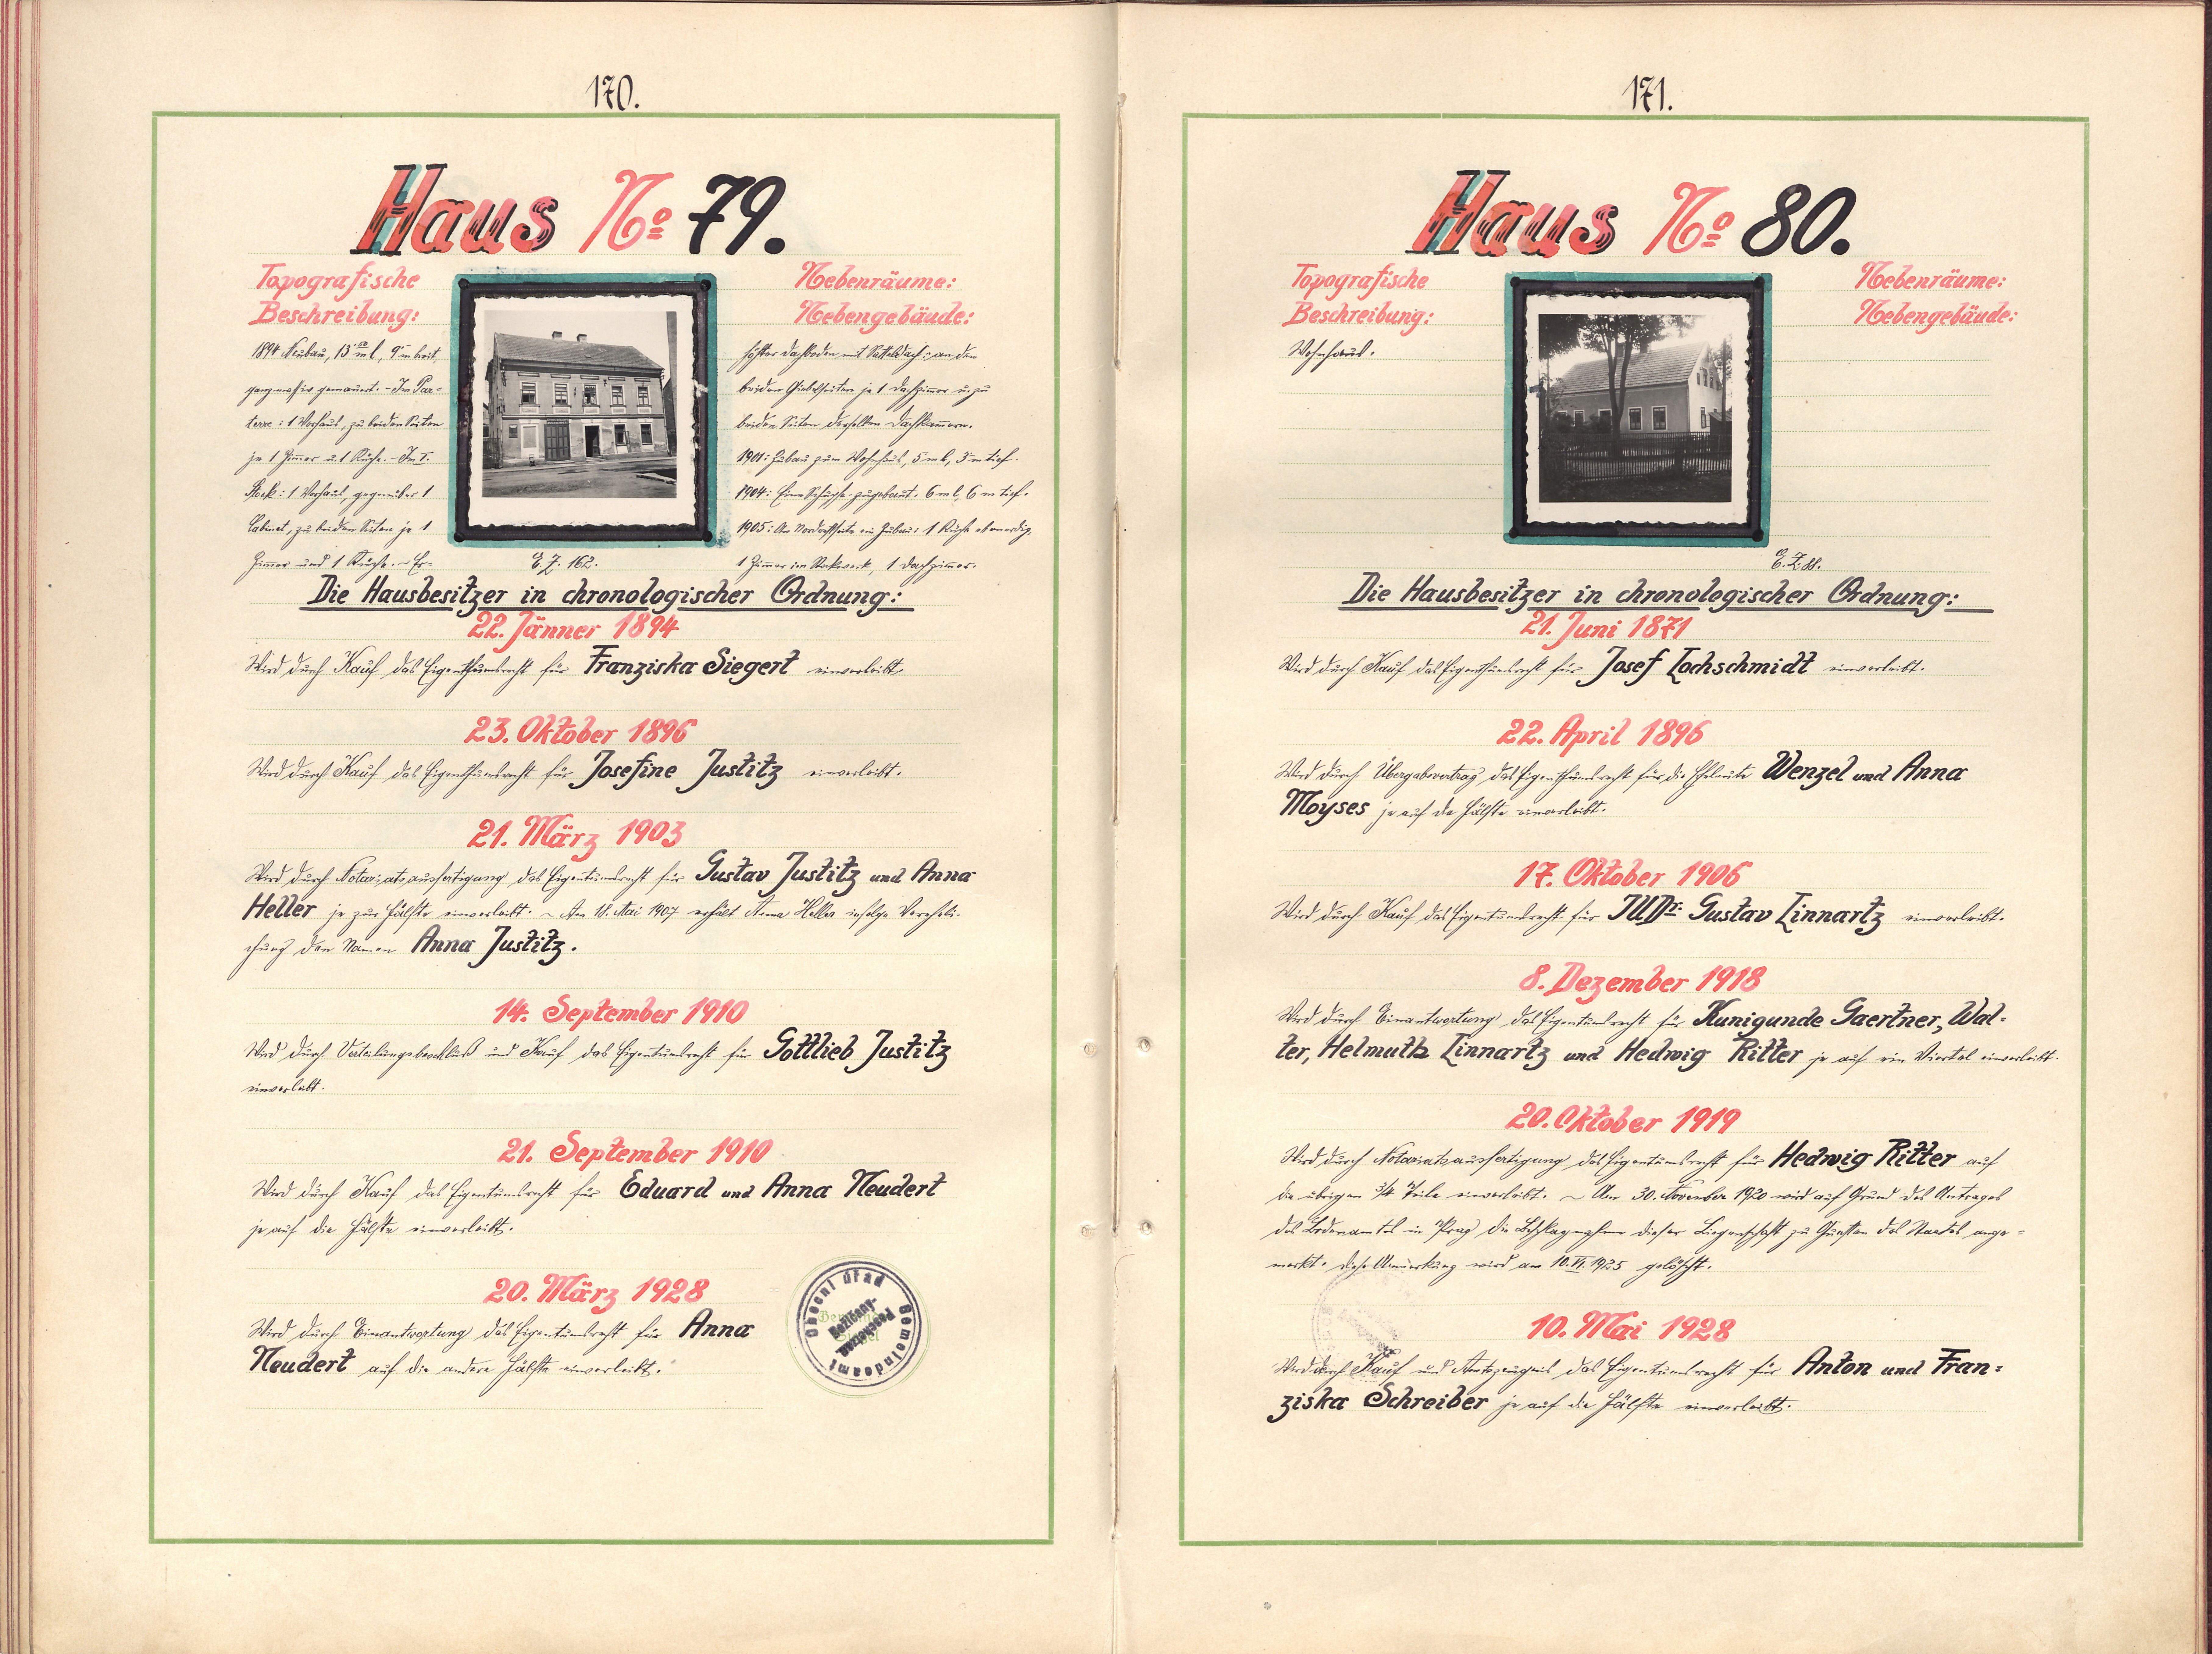 170.
Haus No 79.
Topografische
Beschreibung:
1894 Neubau, 13 m l, 9 m breit,
ganz massiv gemauert. - Im Par-
terre: 1 Vorhaus, zu beiden Seiten
je 1 Zimmer u. 1 Küche. - Im I.
Stock: 1 Vorhaus, gegenüber 1
Cabinet, zu beiden Seiten je 1
Zimmer und 1 Küche. - Er-
E. Z. 162.
Nebenräume:
Nebengebäude:
höhter Dachboden mit Satteldach: an den
beiden Giebelseiten je 1 Dachzimmer u. zu
beiden Seiten derselben Dachkammern.
1901: Zubau zum Wohnhaus, 5 m l, 3 m tief.
1904: Eine Schupfe zugebaut. 6 m l, 6 m tief.
1905: An Nordostseite ein Zubau: 1 Küche ebenerdig,
1 Zimmer im Stockwerk, 1 Dachzimmer.
Die Hausbesitzer in chronologischer Ordnung:
22. Jänner 1894
Wird durch Kauf das Eigenthumsrecht für Franziska Siegert einverleibt.
23. Oktober 1896
Wird durch Kauf das Eigenthumsrecht für Josefine Justitz einverleibt.
21. März 1903
Wird durch Notariatsausfertigung das Eigentumsrecht für Gustav Justitz und Anna
Heller je zur Hälfte einverleibt. ~ Am 18. Mai 1907 erhält Anna Heller infolge Vereheli-
chung den Namen Anna Justitz.
14. September 1910
Wird durch Verteilungsbeschluß und Kauf das Eigentumsrecht für Gottlieb Justitz
einverleibt.
21. September 1910
Wird durch Kauf das Eigentumsrecht für Eduard und Anna Neudert
je auf die Hälfte einverleibt.
20. März 1928
Wird durch Einantwortung das Eigentumsrecht für Anna
Neudert auf die andere Hälfte einverleibt.
Obecní úřad
Gemeindeamt
171.
Haus No 80.
Topografische
Beschreibung:
Wohnhaus.
Nebenräume:
Nebengebäude:
E. Z. 88.
Die Hausbesitzer in chronologischer Ordnung:
21. Juni 1871
Wird durch Kauf das Eigenthumsrecht für Josef Lochschmidt einverleibt.
22. April 1896
Wird durch Übergabsvertrag das Eigenthumsrecht für die Eheleute Wenzel und Anna
Moyses je auf die Hälfte einverleibt.
17. Oktober 1906
Wird durch Kauf das Eigentumsrecht für JUDr. Gustav Linnartz einverleibt.
8. Dezember 1918
Wird durch Einantwortung das Eigentumsrecht für Kunigunde Gaertner, Wal-
ter, Helmuth Linnartz und Hedwig Ritter je auf ein Viertel einverleibt.
20. Oktober 1919
Wird durch Notariatsausfertigung das Eigentumsrecht für Hedwig Ritter auf
die übrigen 3/4 Teile einverleibt. ~ Am 30. November 1920 wird auf Grund des Antrages
des Bodenamtes in Prag die Beschlagnahme dieser Liegenschaft zu Gunsten des Staates ange-
merkt. Diese Anmerkung wird am 10. VI. 1925 gelöscht.
10. Mai 1928
Wird durch Kauf und Amtszeugnis das Eigentumsrecht für Anton und Fran-
ziska Schreiber je auf die Hälfte einverleibt.